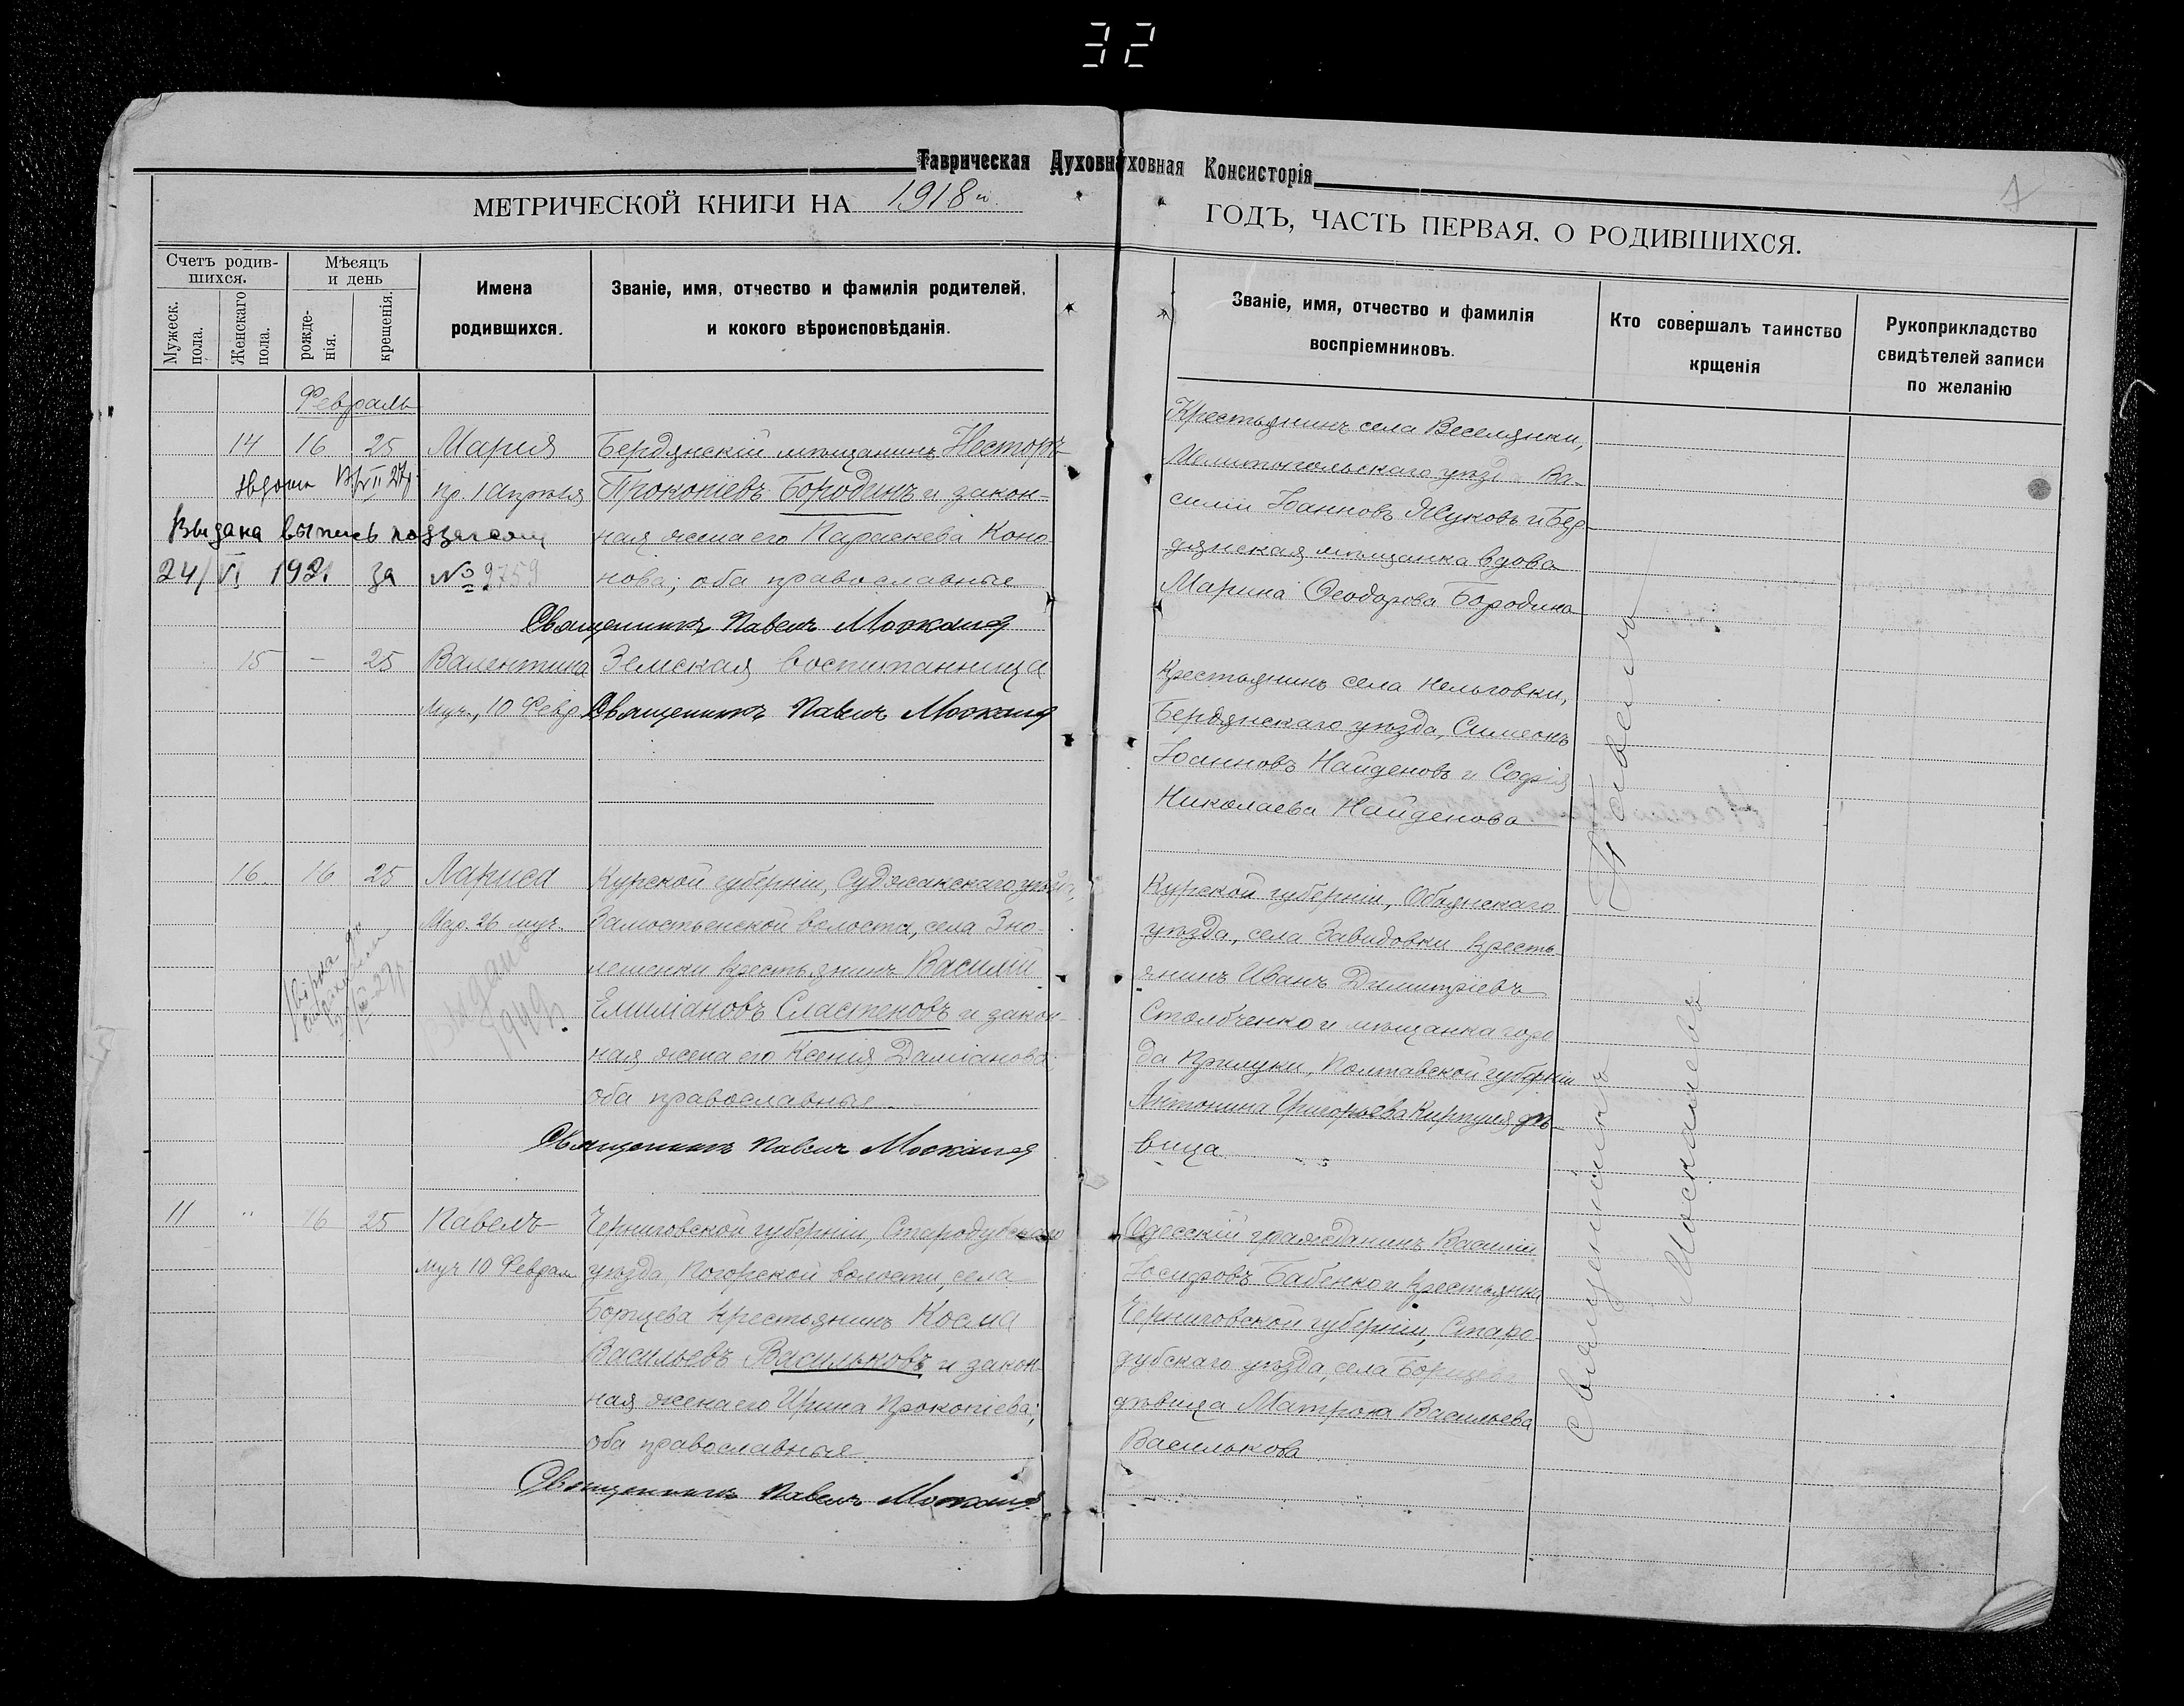 32
Таврическая Духовн
уховная Консисторія
МЕТРИЧЕСКОЙ КНИГИ НА 1918 г.
ГОДЪ, ЧАСТЬ ПЕРВАЯ, О РОДИВШИХСЯ.
Счетъ родившихся.
Мужеск. пола.
Женскаго пола.
Мѣсяцъ и день
рожденія.
крещенія.
Имена
родившихся.
Званіе, имя, отчество и фамилія родителей,
и кокого вѣроисповѣданія.
Званіе, имя, отчество и фамилія
воспріемниковъ.
Кто совершалъ таинство
крщенія
Рукоприкладство
свидѣтелей записи
по желанію
Февраль
14 16 25 Марія Бердянскій мѣщанинъ Несторъ
пр. 1 Апрѣля Прокопіевъ Бородинъ и закон-
Выдана выпись
ная жена его Параскева Коно-
24/VI 192 за № 9759
нова; оба православные
Священникъ Павелъ Москалев
Крестьянинъ села Веселянки,
Мелитопольскаго уѣзда Ва-
силій Іоанновъ Жуковъ и Бер-
дянская мѣщанка вдова
Марина Ѳеодорова Бородина
15 — 25 Валентина Земская воспитанница
муч., 10 Февр. Священникъ Павелъ Москалев
Крестьянинъ села Нельговки,
Бердянскаго уѣзда, Симеонъ
Іоанновъ Найденовъ и Софія
Николаева Найденова
16 16 25 Лариса Курской губерніи, Суджанскаго уѣзда,
Мар. 26 муч. Замостьенской волости, села Зно-
крестьянинъ Василій
Емиліановъ Сластеновъ и закон-
ная жена его Ксенія Даміанова;
оба православные
Священникъ Павелъ Москалев
Выдано
Курской губерніи, Обоянскаго
уѣзда, села Завидовки кресть-
янинъ Иванъ Димитріевъ
Столбченко и мѣщанка горо
да Прилуки, Полтавской губерніи
Антонина Григорьева Киргуля дѣ-
вица
11 " 16 25 Павелъ Черниговской губерніи, Стародубскаго
муч 10 Февраля уѣзда, Погорской волости, села
Борщева крестьянинъ Косма
Васильевъ Васильковъ и закон-
ная жена его Ирина Прокопіева;
оба православные
Священникъ Павелъ Москалев
Одесскій гражданинъ Василій
Іосифовъ Бабенко и крестьянка
Черниговской губерніи, Старо-
дубскаго уѣзда, села Борщева
дѣвица Матрона Васильева
Василькова
Священникъ Павелъ
Москалевъ